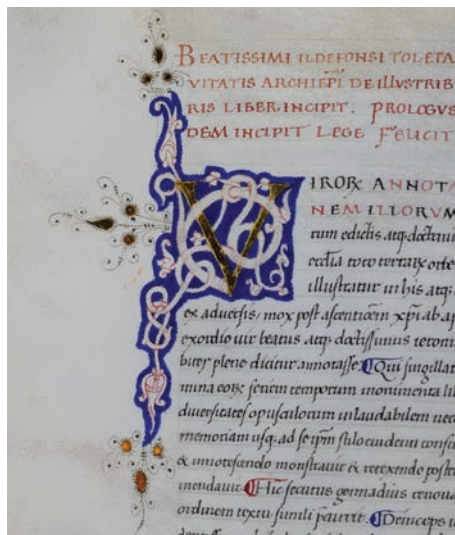 BEATISSIMI ILDEFONSI TOLETA
VITATIS ARCHIEPĪ DE ILLVSTRIB
RIS LIBER INCIPIT. PROLOGVS
DEM INCIPIT LEGE FELICIT
VIRORꝜ ANNOTA
NEM ILLORVM
rum edictis atq; doctrini
ecclīa toto terraꝝ orbe
illustratur in his atq;
ex aduersis, mox post ascentiōem xp̄i ab ap
exordio uir beatus atq; doctissimus ieroni
plene dicitur annotasse. Qui singillat
mina eoꝝ seriem temporum monumenta li
diuersitates opusculorum inlaudabilem
memoriam usq; ad se ip̄m stilo
& innotescendo monstrauit & retexendo
mendauit. Hic secutus gennadius renou
ordinem textu simili Deinceps